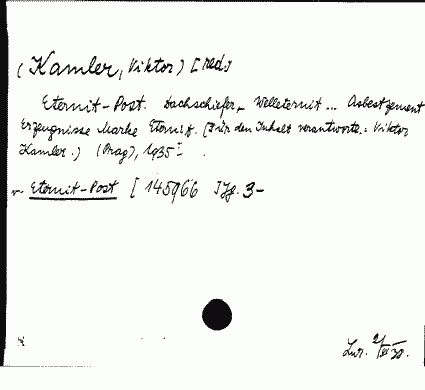 (Kamler, Viktor) [red.]
Eternit-Post. Dachschiefer, Welleternit ... Asbestzement
Erzeugnisse Marke Eternit. [Für den Inhalt verantwortl.: Viktor
Kamler.) (Prag), 1935-.
v. Eternit-Post [145966 Jg. 3-